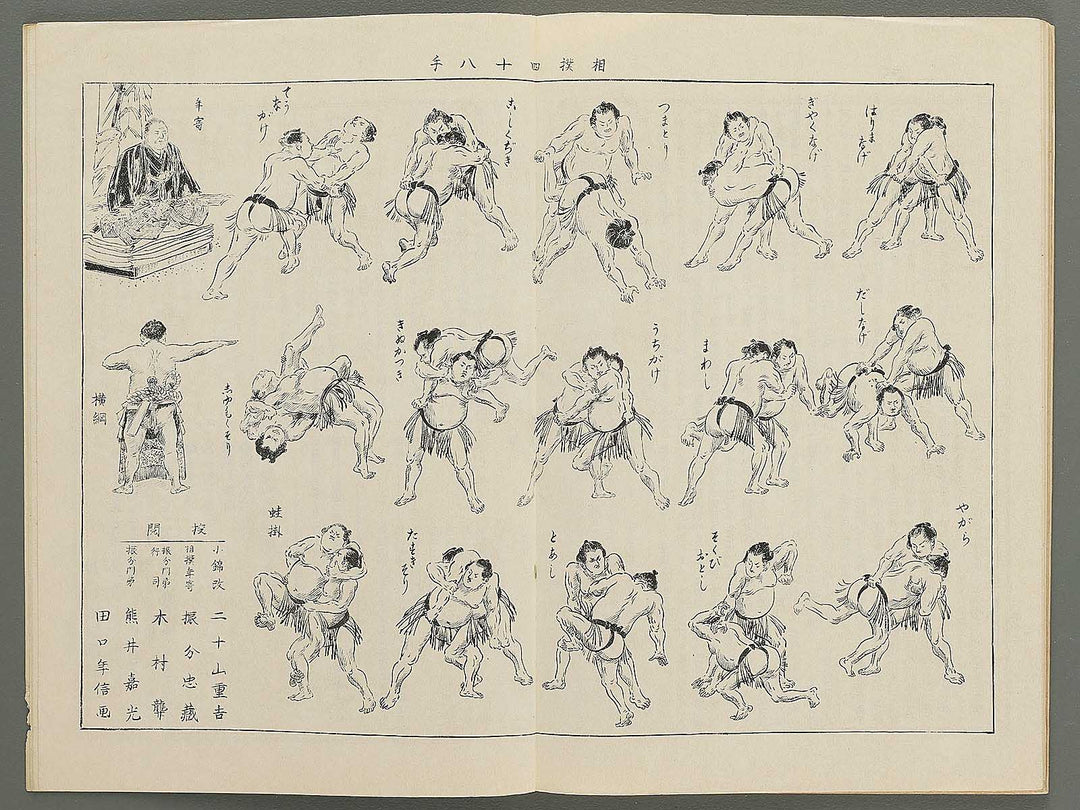 相撲四十八手
はりまなげ
ぎやくなげ
つまとり
こしくぢき
てうなかけ
年寄
だしなげ
まわし
うちがけ
きぬかつき
しゆもくそり
横綱
やがら
そくびおとし
とあし
たすきそり
蛙掛
校閲
小錦改
二十山重吉
相撲年寄
振分忠藏
行司
木村
振分門弟
熊井嘉光
田口年信画